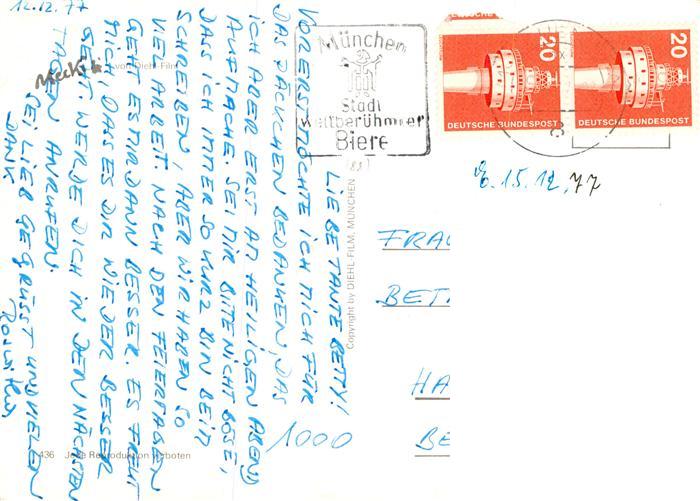 12.12.77
LIEBE TANTE BETTY!
VORERST MÖCHTE ICH MICH FÜR
DAS PÄCKCHEN BEDANKEN, DAS
ICH ABER ERST AN HEILIGEN ABEND
AUFMACHE. SEI MIR BITTE NICHT BÖSE,
DASS ICH IMMER SO KURZ BIN BEIM
SCHREIBEN, ABER WIR HABEN SO
VIEL ARBEIT. NACH DEN FEIERTAGEN
GEHT ES MIR DANN BESSER. ES FREUT
MICH, DASS ES DIR WIEDER BESSER
GEHT. WERDE DICH IN DEN NÄCHSTEN
TAGEN ANRUFEN.
SEI LIEB GEGRÜSST UND VIELEN
DANK
Mecki
von Diehl-Film
436 Jede Reproduktion verboten
Copyright by DIEHL-FILM, MÜNCHEN
München
Stadt
weltberühmter
Biere
20
DEUTSCHE BUNDESPOST
20
DEUTSCHE BUNDESPOST
15.12.77
FRAU
BET
1000
HA
BE